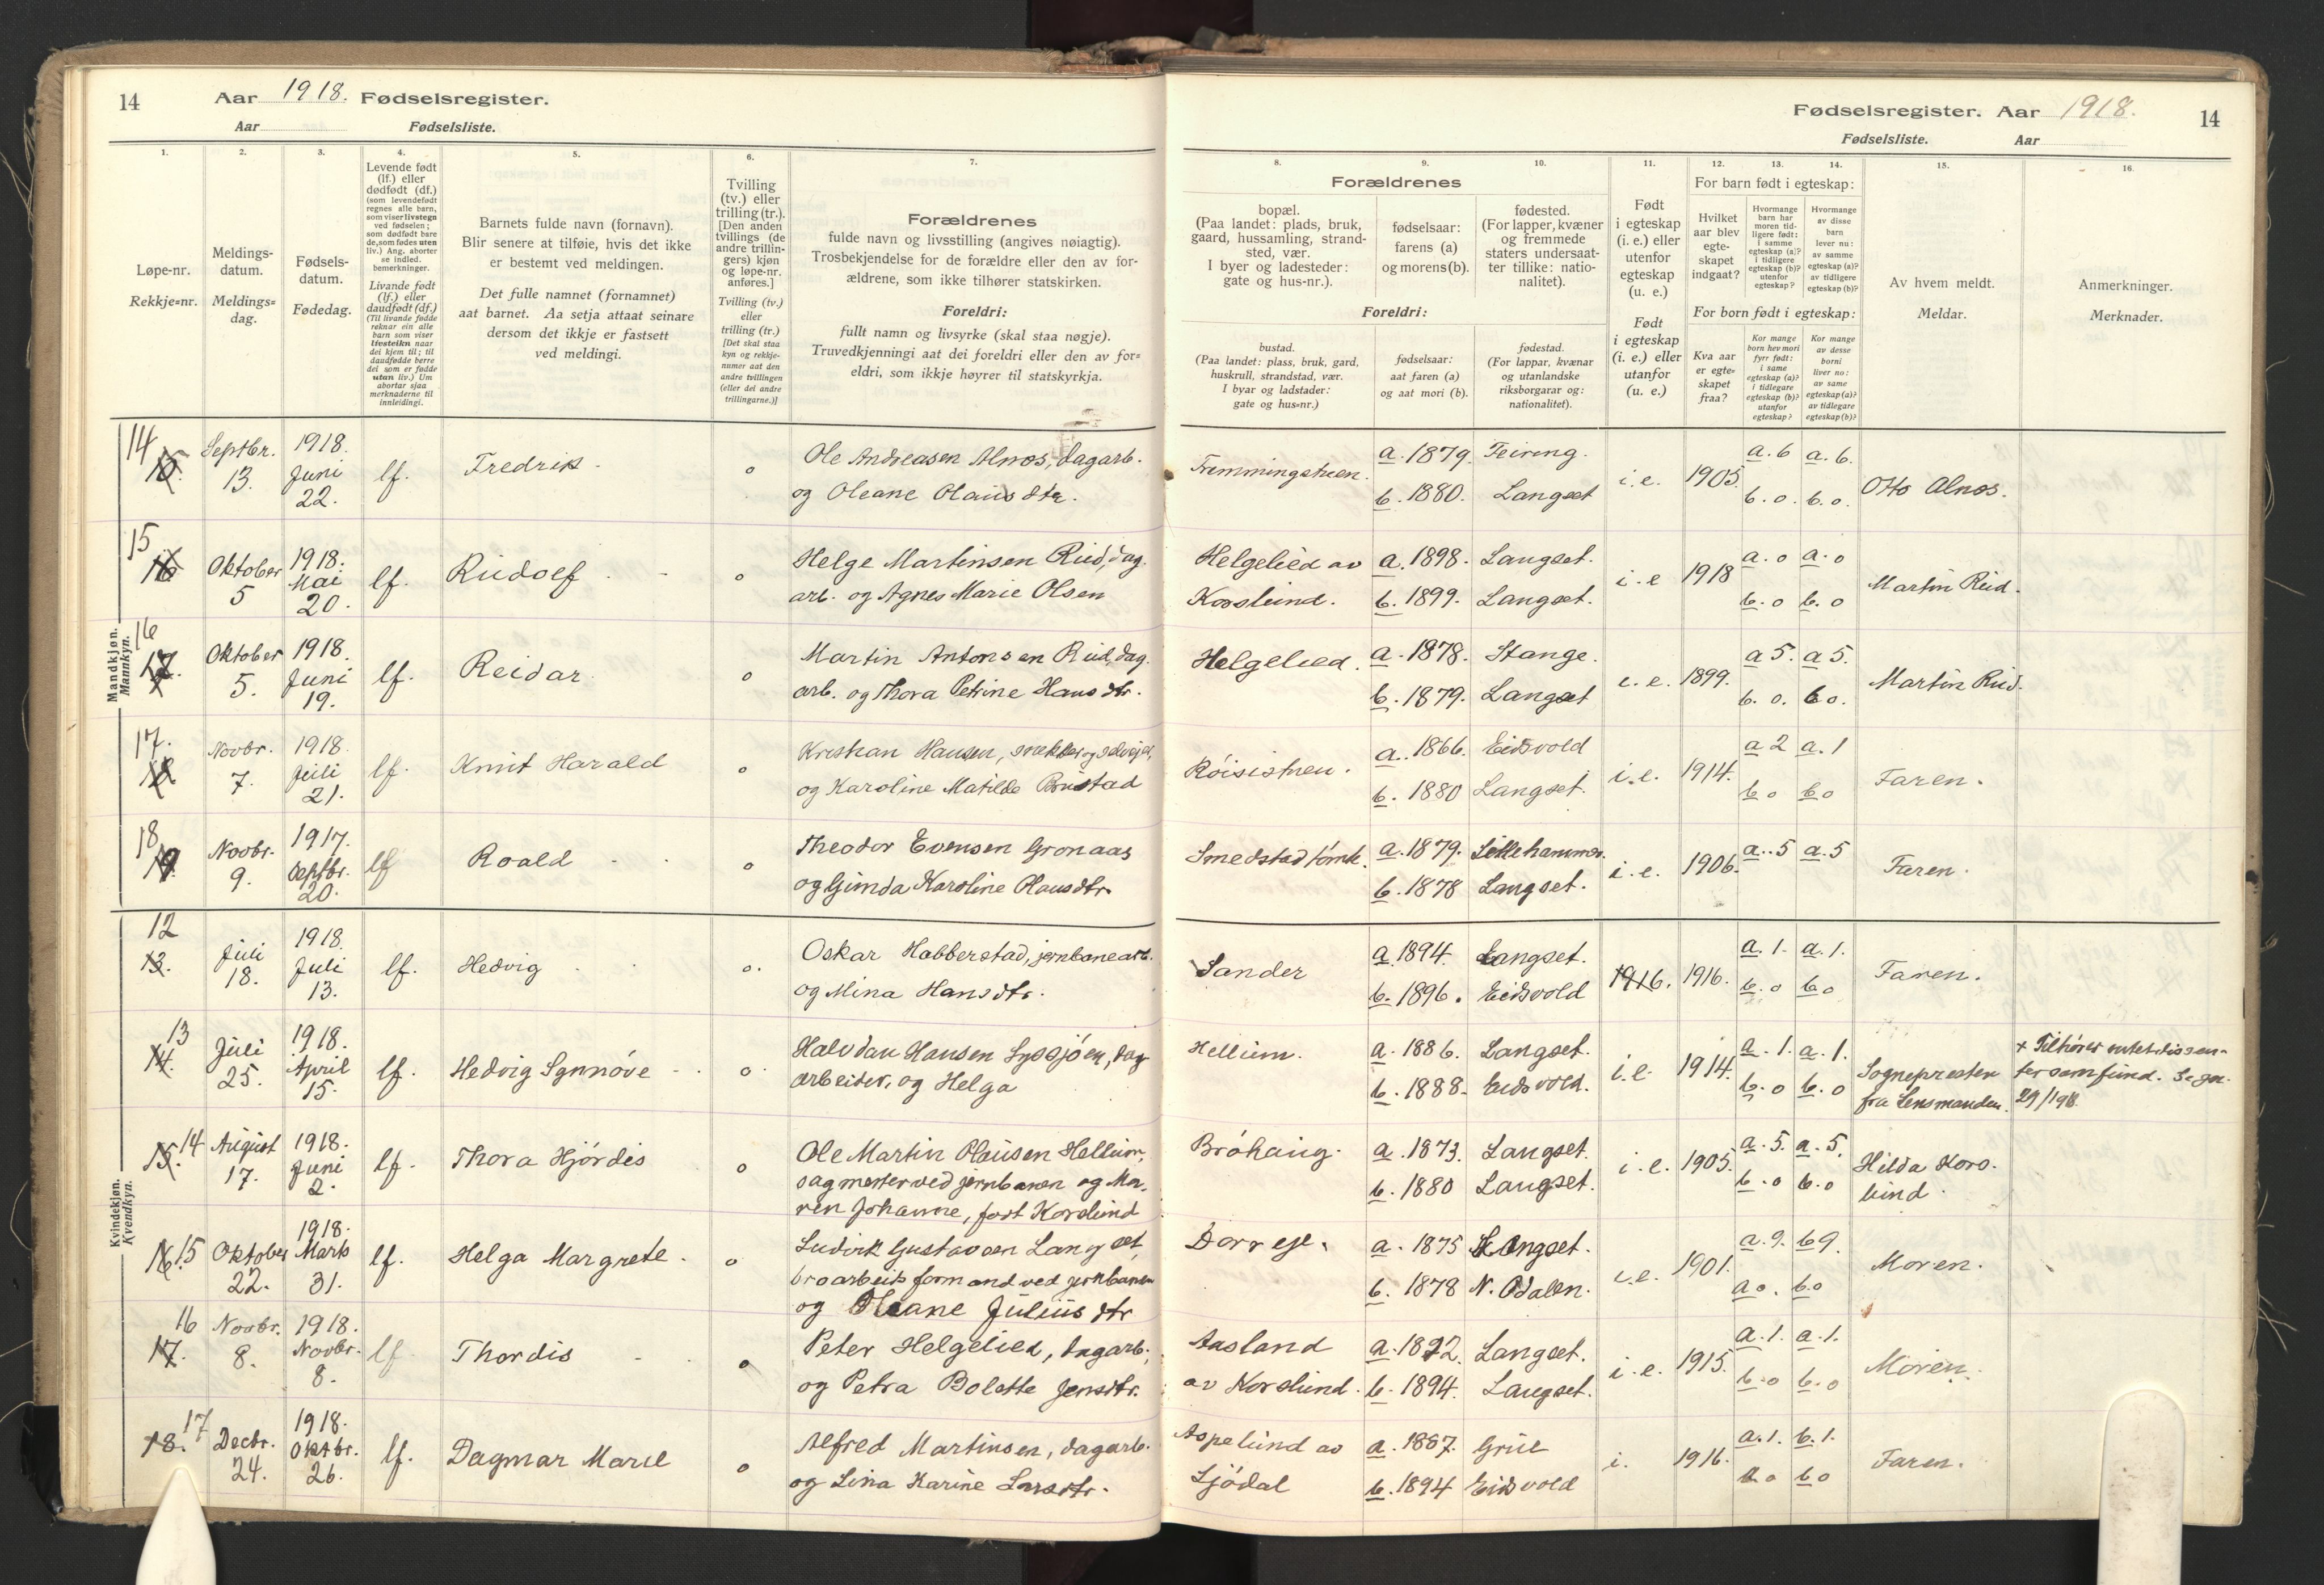 14
Aar 1918. Fødselsregister.
Aar Fødselsliste.
1.
2.
3.
4.
5.
6.
7.
Løpe-nr.
Rekkje=nr.
Meldings-
datum.
Meldings=
dag.
Fødsels-
datum.
Fødedag.
Levende født
(lf.) eller
dødfødt (df.)
(som levendefødt
regnes alle barn,
som viser livstegn
ved fødselen;
som dødfødt bare
de, som fødes uten
liv.) Ang. aborter
se indled.
bemerkninger.
Livande født
(lf.) eller
daudfødt (df.)
(Til livande fødde
reknar ein alle
barn som viser
livsteikn naar
dei kjem til; til
daudfødde berre
dei som er fødde
utan liv.) Um
abortar sjaa
merknaderne til
innleidingi.
Barnets fulde navn (fornavn).
Blir senere at tilføie, hvis det ikke
er bestemt ved meldingen.
Det fulle namnet (fornamnet)
aat barnet. Aa setja attaat seinare
dersom det ikkje er fastsett
ved meldingi.
Tvilling
(tv.) eller
trilling (tr.).
[Den anden
tvillings (de
andre trillin-
gers) kjøn
og løpe-nr.
anføres.]
Tvilling (tv.)
eller
trilling (tr.)
[Det skal staa
kyn og rekkje-
numer aat den
andre tvillingen
(eller dei andre
trillingarne.)]
Forældrenes
fulde navn og livsstilling (angives nøiagtig).
Trosbekjendelse for de forældre eller den av for-
ældrene, som ikke tilhører statskirken.
Foreldri:
fullt namn og livsyrke (skal staa nøgje).
Truvedkjenningi aat dei foreldri eller den av for=
eldri, som ikkje høyrer til statskyrkja.
Mandkjøn.
Mannkyn.
14
15.
Septbr.
13.
1918.
Juni
22.
lf.
Fredrik
o
Ole Andreasen Alnos, dagarb.
og Oleane Olausdtr.
15
16
Oktober
5
1918.
Mai
20.
lf.
Rudolf
o
Helge Martinsen Rud, dag.
arb. og Agnes Marie Olsen
16
17.
Oktober
5.
1918.
Juni
19.
lf.
Reidar
o
Martin Antonsen Rud, dag.
arb. og Thora Petrine Hansdtr.
17.
18
Novbr.
7.
1918.
Juli
21.
lf.
Knut Harald
o
Kristian Hansen, snekker og selveier,
og Karoline Matilde Brustad
18
19.
Novbr.
9.
1917.
Septbr.
20.
lf
Roald
o
Theodor Evensen Gronaas
og Gunda Karoline Olausdtr.
Kvindekjøn.
Kvendkyn.
12
13.
Juli
18.
1918.
Juli
13.
lf.
Hedvig
o.
Oskar Habberstad, jernbanearb.
og Mina Hansdtr.
13
14.
Juli
25.
1918.
April
15.
lf.
Hedvig Synnöve
o
Halvdan Hansen Syssjöen, dag
arbeider, og Helga
14
15.
August
17.
1918.
Juni
2.
lf.
Thora Hjördis
o
Ole Martin Olausen Hellum,
sagmester ved jernbanen og Ma-
ren Johanne, født Korslund
16 15
Oktober
22.
1918.
Marts
31.
lf.
Helga Margrete
o
Ludvik Gustavsen Langset,
broarbeidsformand ved jernbanen
og Oleane Juliusdtr
16
17.
Novbr.
8.
1918.
Novbr.
8.
lf
Thordis
o
Peter Helgelied, dagarb.,
og Petra Bolette Jensdtr.
17
18.
Decbr.
24.
1918.
Oktbr.
26.
lf.
Dagmar Marie
o
Alfred Martinsen, dagarb.
og Lina Karine Larsdtr.
Fødselsregister. Aar 1918.
14
Fødselsliste. Aar
8.
9.
10.
11.
12.
13.
14.
15.
16.
Forældrenes
bopæl.
(Paa landet: plads, bruk,
gaard, hussamling, strand-
sted, vær.
I byer og ladesteder:
gate og hus-nr.).
fødselsaar:
farens (a)
og morens (b).
fødested.
(For lapper, kvæner
og fremmede
staters undersaat-
ter tillike: natio-
nalitet).
Foreldri:
bustad.
(Paa landet: plass, bruk, gard,
huskrull, strandstad, vær.
I byar og ladstader:
gate og hus=nr.)
fødselsaar:
aat faren (a)
og aat mori (b).
fødestad.
(For lappar, kvænar
og utanlandske
riksborgarar og:
nationalitet).
Født
i egteskap
(i. e.) eller
utenfor
egteskap
(u. e.)
Født
i egteskap
(i. e.) eller
utanfor
(u. e.)
For barn født i egteskap:
Hvilket
aar blev
egte-
skapet
indgaat?
Hvormange
barn har
moren tid-
ligere født:
i samme
egteskap (a)?
i tidligere
egteskap (b)?
utenfor
egteskap?
Hvormange
av disse
barn
lever nu:
av samme
egteskap (a)?
av tidligere
egteskap (b)?
For born født i egteskap:
Kva aar
er egte=
skapet
fraa?
Kor mange
born hev mori
fyrr født:
i same
egteskap (a)?
i tidlegare
egteskap (b)?
utanfor
egteskap?
Kor mange
av desse
borni
liver no:
av same
egteskap (a)?
av tidlegare
egteskap (b)?
Av hvem meldt.
Meldar.
Anmerkninger.
Merknader.
Fremmingstuen.
a. 1879.
b. 1880.
Feiring.
Langset
i. e.
1905.
a. 6
b. o.
a. 6.
b. o.
Otto Alnos.
Helgelied av
Korslund.
a. 1898.
b. 1899.
Langset.
Langset.
i. e
1918
a. o
b. o
a. o
b. o
Martin Rud.
Helgelied.
a. 1878.
b. 1879.
Stange.
Langset
i. e.
1899.
a 5.
b. o.
a 5.
b o.
Martin Rud.
Röisistuen.
a. 1866.
b. 1880
Eidsvold
Langset.
i. e.
1914.
a 2
b o
a. 1
b o
Faren.
Smedstadtomte.
a. 1879.
b. 1878
Lillehammer.
Langset.
i. e.
1906.
a. 5
a. 5
Faren.
Sander
a. 1894.
b. 1896.
Langset.
Eidsvold
1916.
1916.
a. 1.
b. o
a. 1.
b o
Faren.
Hellum.
a. 1886.
b. 1888.
Langset.
Eidsvold.
i. e.
1914.
a. 1.
b. o
a. 1.
b. o
Sognepresten
fra Lensmanden.
+ Tilhører intet dissen-
tersamfund.
Bröhaug.
a. 1873.
b. 1880
Langset.
Langset.
i. e.
1905.
a. 5.
b. o
a. 5.
b. o
Hilda Kors-
lund.
Dorreje.
a. 1875
b. 1878
Langset.
N. Odalen.
i. e.
1901.
a. 9.
a o.
b 9.
b. o
Moren.
Aasland
av Korslund.
a. 1892.
b. 1894.
Langset.
Langset.
i. e.
1915.
a. 1.
b. o
a. 1.
b. o
Moren.
Aspelund av
Sjödal
a. 1887.
b. 1894
Grue
Eidsvold
i.
1916.
a. 1.
b o
b. 1.
b o
Faren.